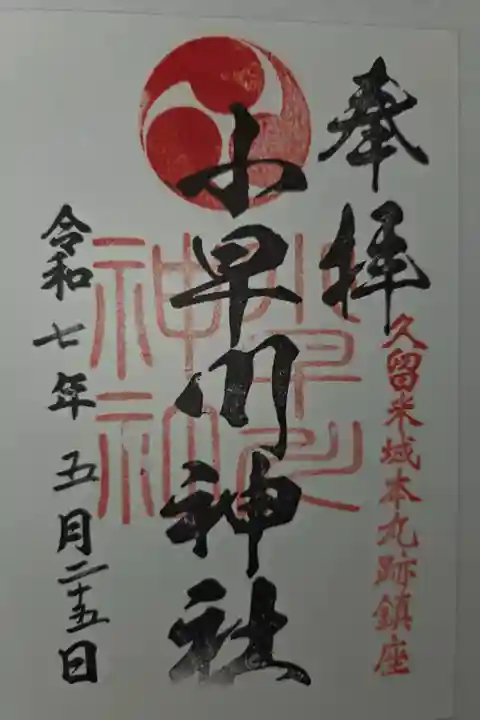 奉拝
久留米城本丸跡鎮座
小早川神社
小早川神社
令和七年五月二十五日